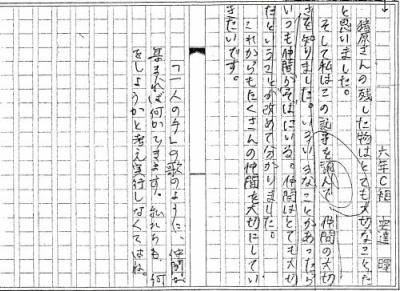 六年C組 安達 暉
猿原さんの残した物はとても大切なことだ
と思いました。
そして私はこの記事を読んで、仲間の大切
さを知りました。いろいろなことがあったら
いつも仲間がそばにいる。仲間はとても大切
だということが改めて分かりました。
これからもたくさんの仲間を大切にしてい
きたいです。
「一人の手」の歌のように、仲間が
集まれば何かできます。私たちも、何
をしようかと考え実行しなくてはね。